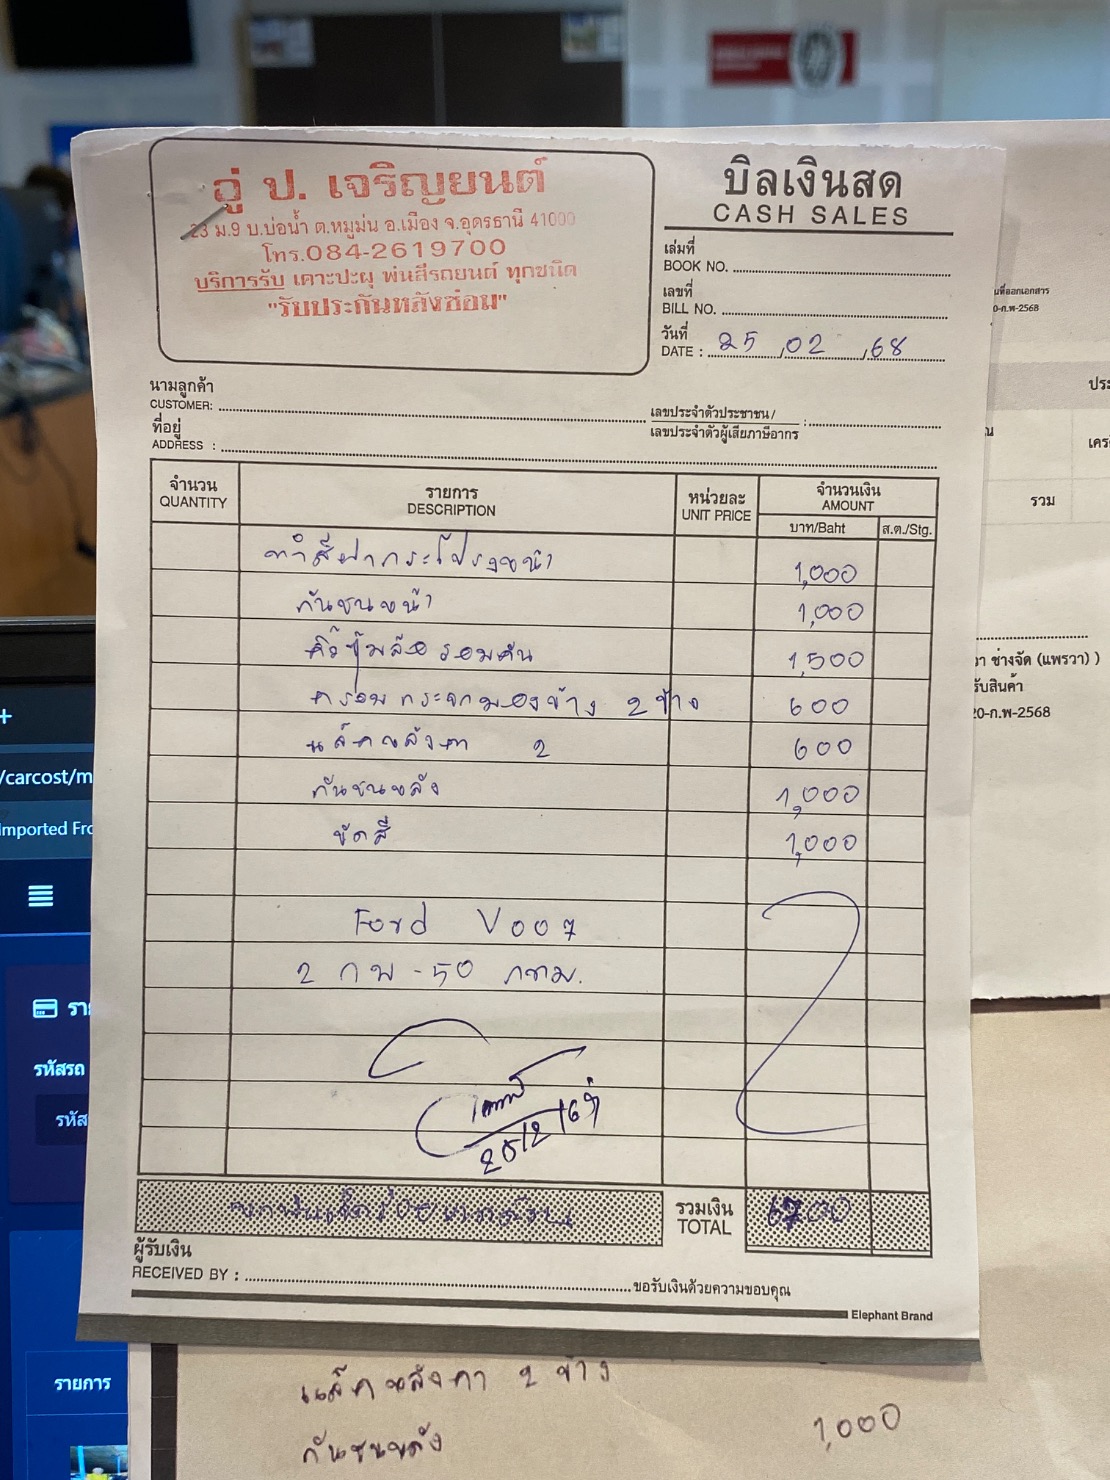 อู่ ป. เจริญยนต์
23 ม.9 บ.บ่อน้ำ ต.หมูม่น อ.เมือง จ.อุดรธานี 41000
โทร.084-2619700
บริการรับ เคาะปะผุ พ่นสีรถยนต์ ทุกชนิด
"รับประกันหลังซ่อม"
บิลเงินสด
CASH SALES
เล่มที่
BOOK NO.
เลขที่
BILL NO.
วันที่
DATE : 25 02 68
นามลูกค้า
CUSTOMER:
เลขประจำตัวประชาชน /
เลขประจำตัวผู้เสียภาษีอากร :
ที่อยู่
ADDRESS :
จำนวน รายการ หน่วยละ จำนวนเงิน
QUANTITY DESCRIPTION UNIT PRICE AMOUNT
บาท/Baht ส.ต./Stg.
ทำสีฝากระโปรงหน้า 1,000
กันชนหน้า 1,000
คิ้วซุ้มล้อรอบคัน 1,500
ครอบกระจกมองข้าง 2 ข้าง 600
แล็คหลังคา 2 600
กันชนหลัง 1,000
ขัดสี 1,000
Ford V007
2 กพ - 50 กทม.
25/2/68
รวมเงิน
TOTAL 6700
ผู้รับเงิน
RECEIVED BY :
ขอรับเงินด้วยความขอบคุณ
Elephant Brand
แล็คหลังคา 2 ข้าง
กันชนหลัง 1,000
นที่ออกเอกสาร
0-ก.พ-2568
ประ
เคร
รวม
วา ช่างจัด (แพรวา) )
รับสินค้า
20-ก.พ-2568
+
/carcost/m
Imported Fr
ราย
รหัสรถ
รหัส
รายการ